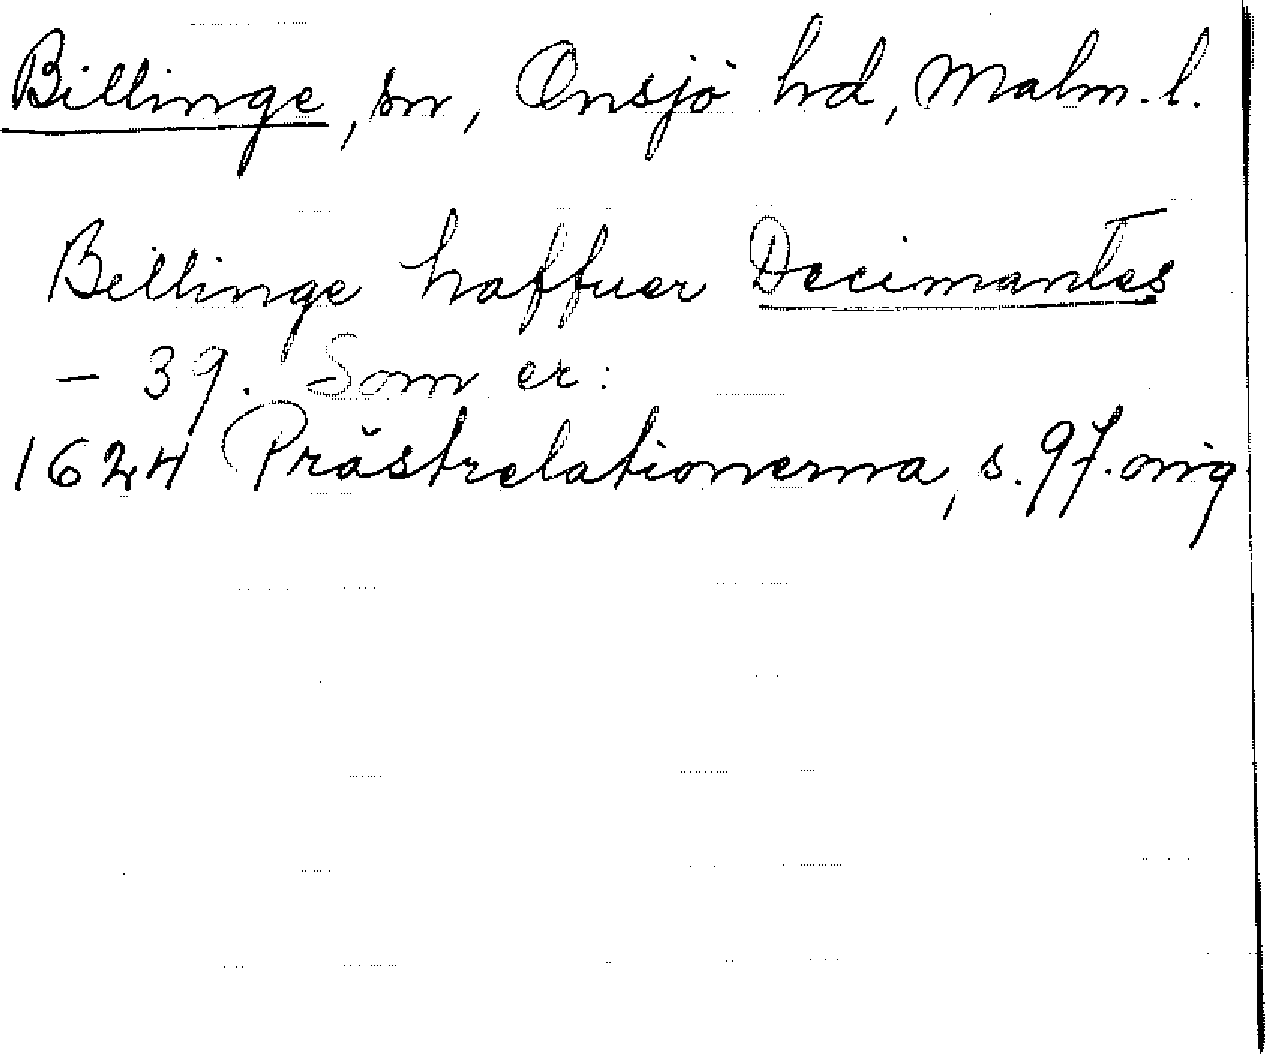 Billinge, sn, Onsjö hd, Malm. l.
Bellinge haffuer Decimantes
– 39. Som er:
1624 Prästrelationerna, s. 97. orig